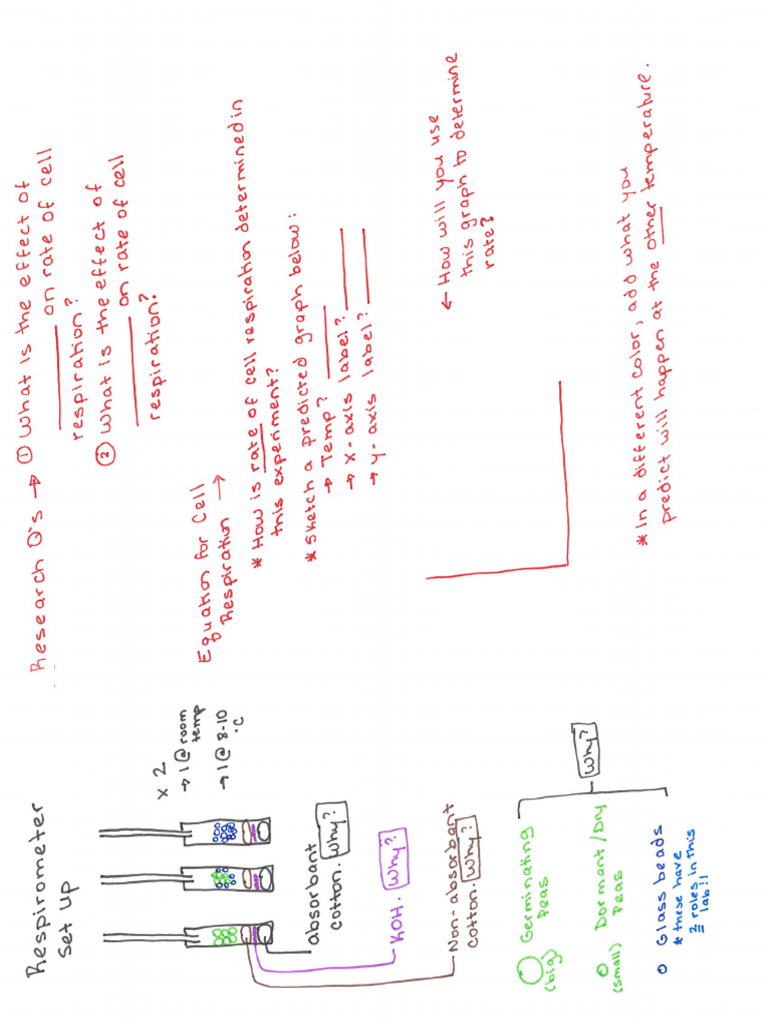 Respirometer
Set Up
x 2
→ 1 @ room
temp
→ 1 @ 8-10
°C
absorbant
cotton. Why?
KOH. Why?
Non-absorbant
cotton. Why?
(big)
Germinating
Peas
(small)
Dormant/Dry
Peas
Glass beads
* these have
2 roles in this
lab!!
Why?
Research Q's → ① What is the effect of
_____ on rate of cell
respiration?
② What is the effect of
_____ on rate of cell
respiration?
Equation for Cell
Respiration →
* How is rate of cell respiration determined in
this experiment?
* Sketch a predicted graph below:
→ Temp? _____
→ x-axis label? _____
→ y-axis label? _____
← How will you use
this graph to determine
rate?
* In a different color, add what you
predict will happen at the other temperature.